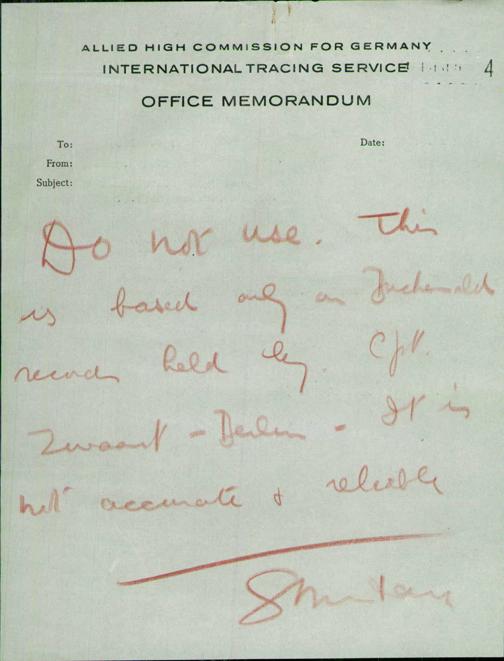 ALLIED HIGH COMMISSION FOR GERMANY
INTERNATIONAL TRACING SERVICE 4
OFFICE MEMORANDUM
To: Date:
From:
Subject:
Do not use. This
is based only on Buchenwald
records held by. Cpt.
Zwaart - Berlin - It is
not accurate & reliable